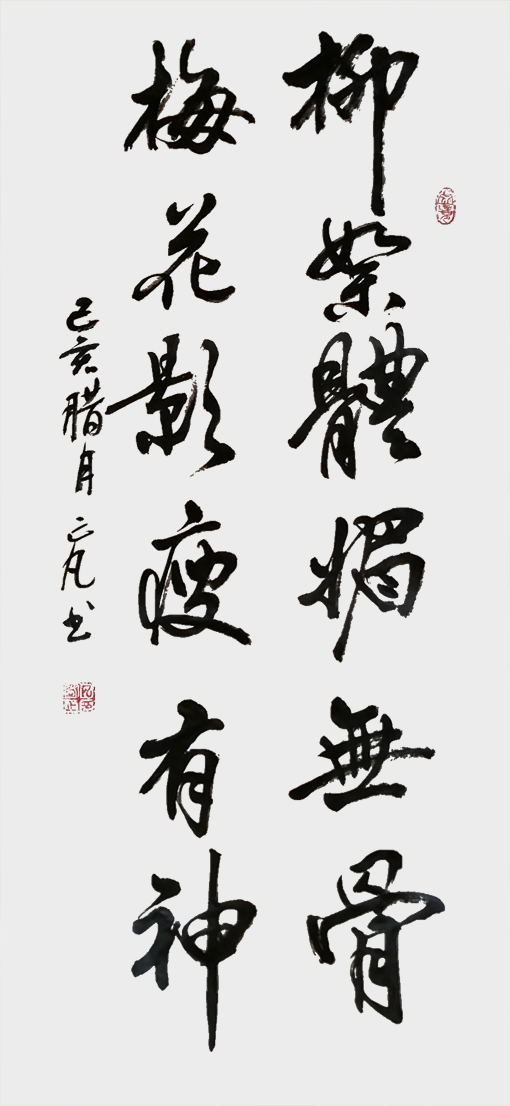 柳絮體媚無骨
梅花影瘦有神
己亥腊月二凡书